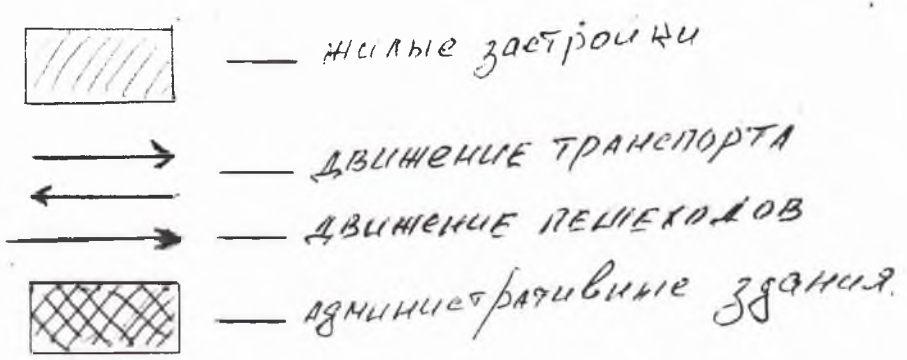 — жилые застройки
— движение транспорта
— движение пешеходов
— административние здания.